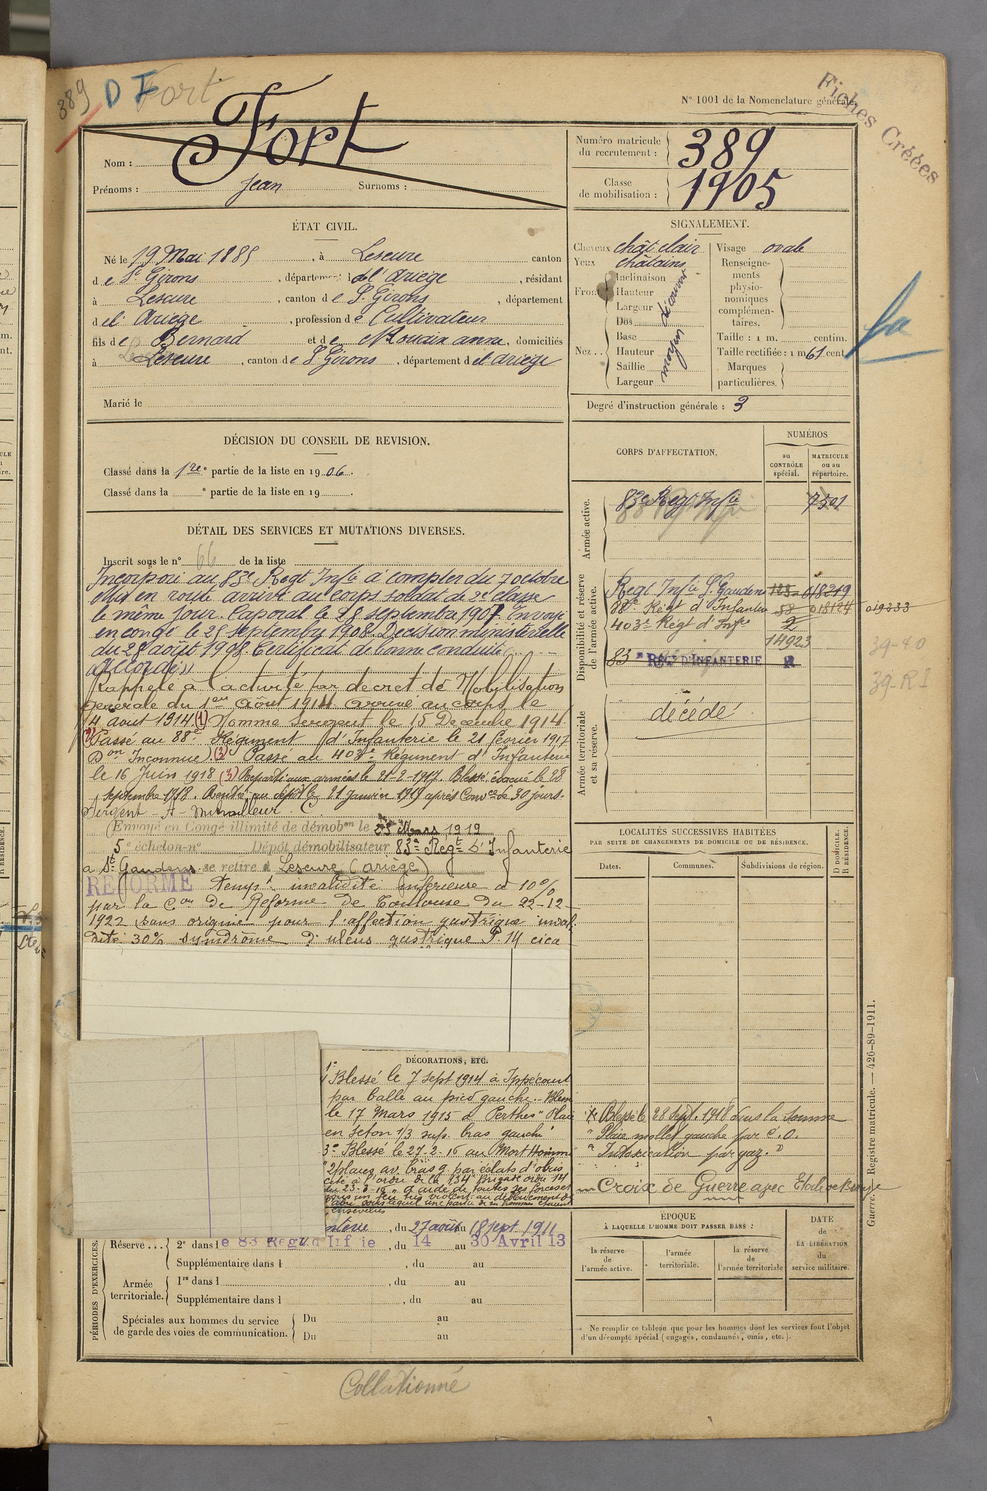 389 D F Fort
N° 1001 de la Nomenclature générale.
Fiches Créées
Nom : Fort
Prénoms : Jean Surnoms :
Numéro matricule du recrutement : 389
Classe de mobilisation : 1905
ÉTAT CIVIL.
Né le 19 Mai 1885, à Lescure canton
de St Girons, département de l'Ariège, résidant
à Lescure, canton de St Girons, département
de l'Ariège, profession de Cultivateur
fils de Bernard et de Anne, domiciliés
à Lescure, canton de St Girons, département de l'Ariège
Marié le
SIGNALEMENT.
Cheveux chât clair
Yeux châtains
Front
Inclinaison
Hauteur
Largeur
Nez
Dos
Base
Hauteur
Saillie
Largeur
moyen
Visage ovale
Renseignements physionomiques complémentaires.
Taille : 1 m. centim.
Taille rectifiée : 1 m 61 cent.
Marques particulières.
Degré d'instruction générale : 3
DÉCISION DU CONSEIL DE REVISION.
Classé dans la 1re partie de la liste en 1906.
Classé dans la e partie de la liste en 19 .
CORPS D'AFFECTATION.
NUMÉROS
au CONTRÔLE spécial.
MATRICULE ou au répertoire.
Armée active.
83e Regt Infie 7501
Disponibilité et réserve de l'armée active.
Regt Infie St Gaudens
88e Régt d'Infanterie
403e Régt d'Infie
14923
83e RÉGt D'INFANTERIE
39-40
39-R I
Armée territoriale et sa réserve.
décédé
DÉTAIL DES SERVICES ET MUTATIONS DIVERSES.
Inscrit sous le n° 66 de la liste
Incorporé au 83e Regt Infie à compter du 7 octobre
1906 en route arrivé au corps soldat de 2e classe
le même jour. Caporal le 28 septembre 1907. Envoyé
en congé le 25 septembre 1908. Décision ministérielle
du 28 août 1908. Certificat de bonne conduite
"Accordé"
Rappelé à l'activité par décret de Mobilisation
générale du 1er Août 1914 arrivé au corps le
4 août 1914 (1) Nommé Sergent le 15 Décembre 1914
(2) Passé au 88e Régiment d'Infanterie le 21 février 1917
Don Inconnue (3) Passé au 403e Régiment d'Infanterie
le 16 Juin 1918 (3) Reparti aux armées le 21-2-1917. Blessé évacué le 28
septembre 1918. Rentré au dépôt le 21 Janvier 1919 après Convce de 30 jours.
Sergent - A - Mitrailleur
Envoyé en Congé illimité de démobon le 25 Mars 1919
5e échelon-n° Dépôt démobilisateur 83e Regt d'Infanterie
a St Gaudens se retire à Lescure (Ariège)
RÉFORMÉ tempre invalidité inférieure à 10%
par la Con de Réforme de Toulouse du 22-12-
1922 sans origine pour l'affection gastrique inval
dité 30% syndrome d'ulcus gastrique P. 14 cica
LOCALITÉS SUCCESSIVES HABITÉES
PAR SUITE DE CHANGEMENTS DE DOMICILE OU DE RÉSIDENCE.
Dates. Communes. Subdivisions de région.
D DOMICILE.
R RÉSIDENCE.
DÉCORATIONS, ETC.
1° Blessé le 7 sept 1914 à Ippécourt
par balle au pied gauche. - Blessé
le 17 Mars 1915 à Perthes "Plaie
en seton 1/3 sup. bras gauche"
3° Blessé le 27-2-16 au Mort Homme
"2 plaies av. bras g. par éclats d'obus
Cité à l'ordre de la 134e Brigade ordre 14
4° Blessé le 28 Sept. 1918 dans la Somme
" Plaie mollet gauche par é. o.
" Intoxication par gaz. "
Croix de Guerre avec Etoile de Bronze
PÉRIODES D'EXERCICES.
, du 27 août au 18 sept. 1911
Réserve... 2e dans le 83 Reg d Inf ie, du 14 au 30 Avril 13
Supplémentaire dans l , du au
Armée territoriale. 1re dans l , du au
Supplémentaire dans l , du au
Spéciales aux hommes du service de garde des voies de communication.
Du au
Du au
ÉPOQUE
À LAQUELLE L'HOMME DOIT PASSER DANS :
la réserve de l'armée active.
l'armée territoriale.
la réserve de l'armée territoriale
DATE de LA LIBÉRATION du service militaire.
Ne remplir ce tableau que pour les hommes dont les services font l'objet
d'un décompte spécial (engagés, condamnés, omis, etc.).
Guerre. Registre matricule. — 426-89-1911.
Collationné